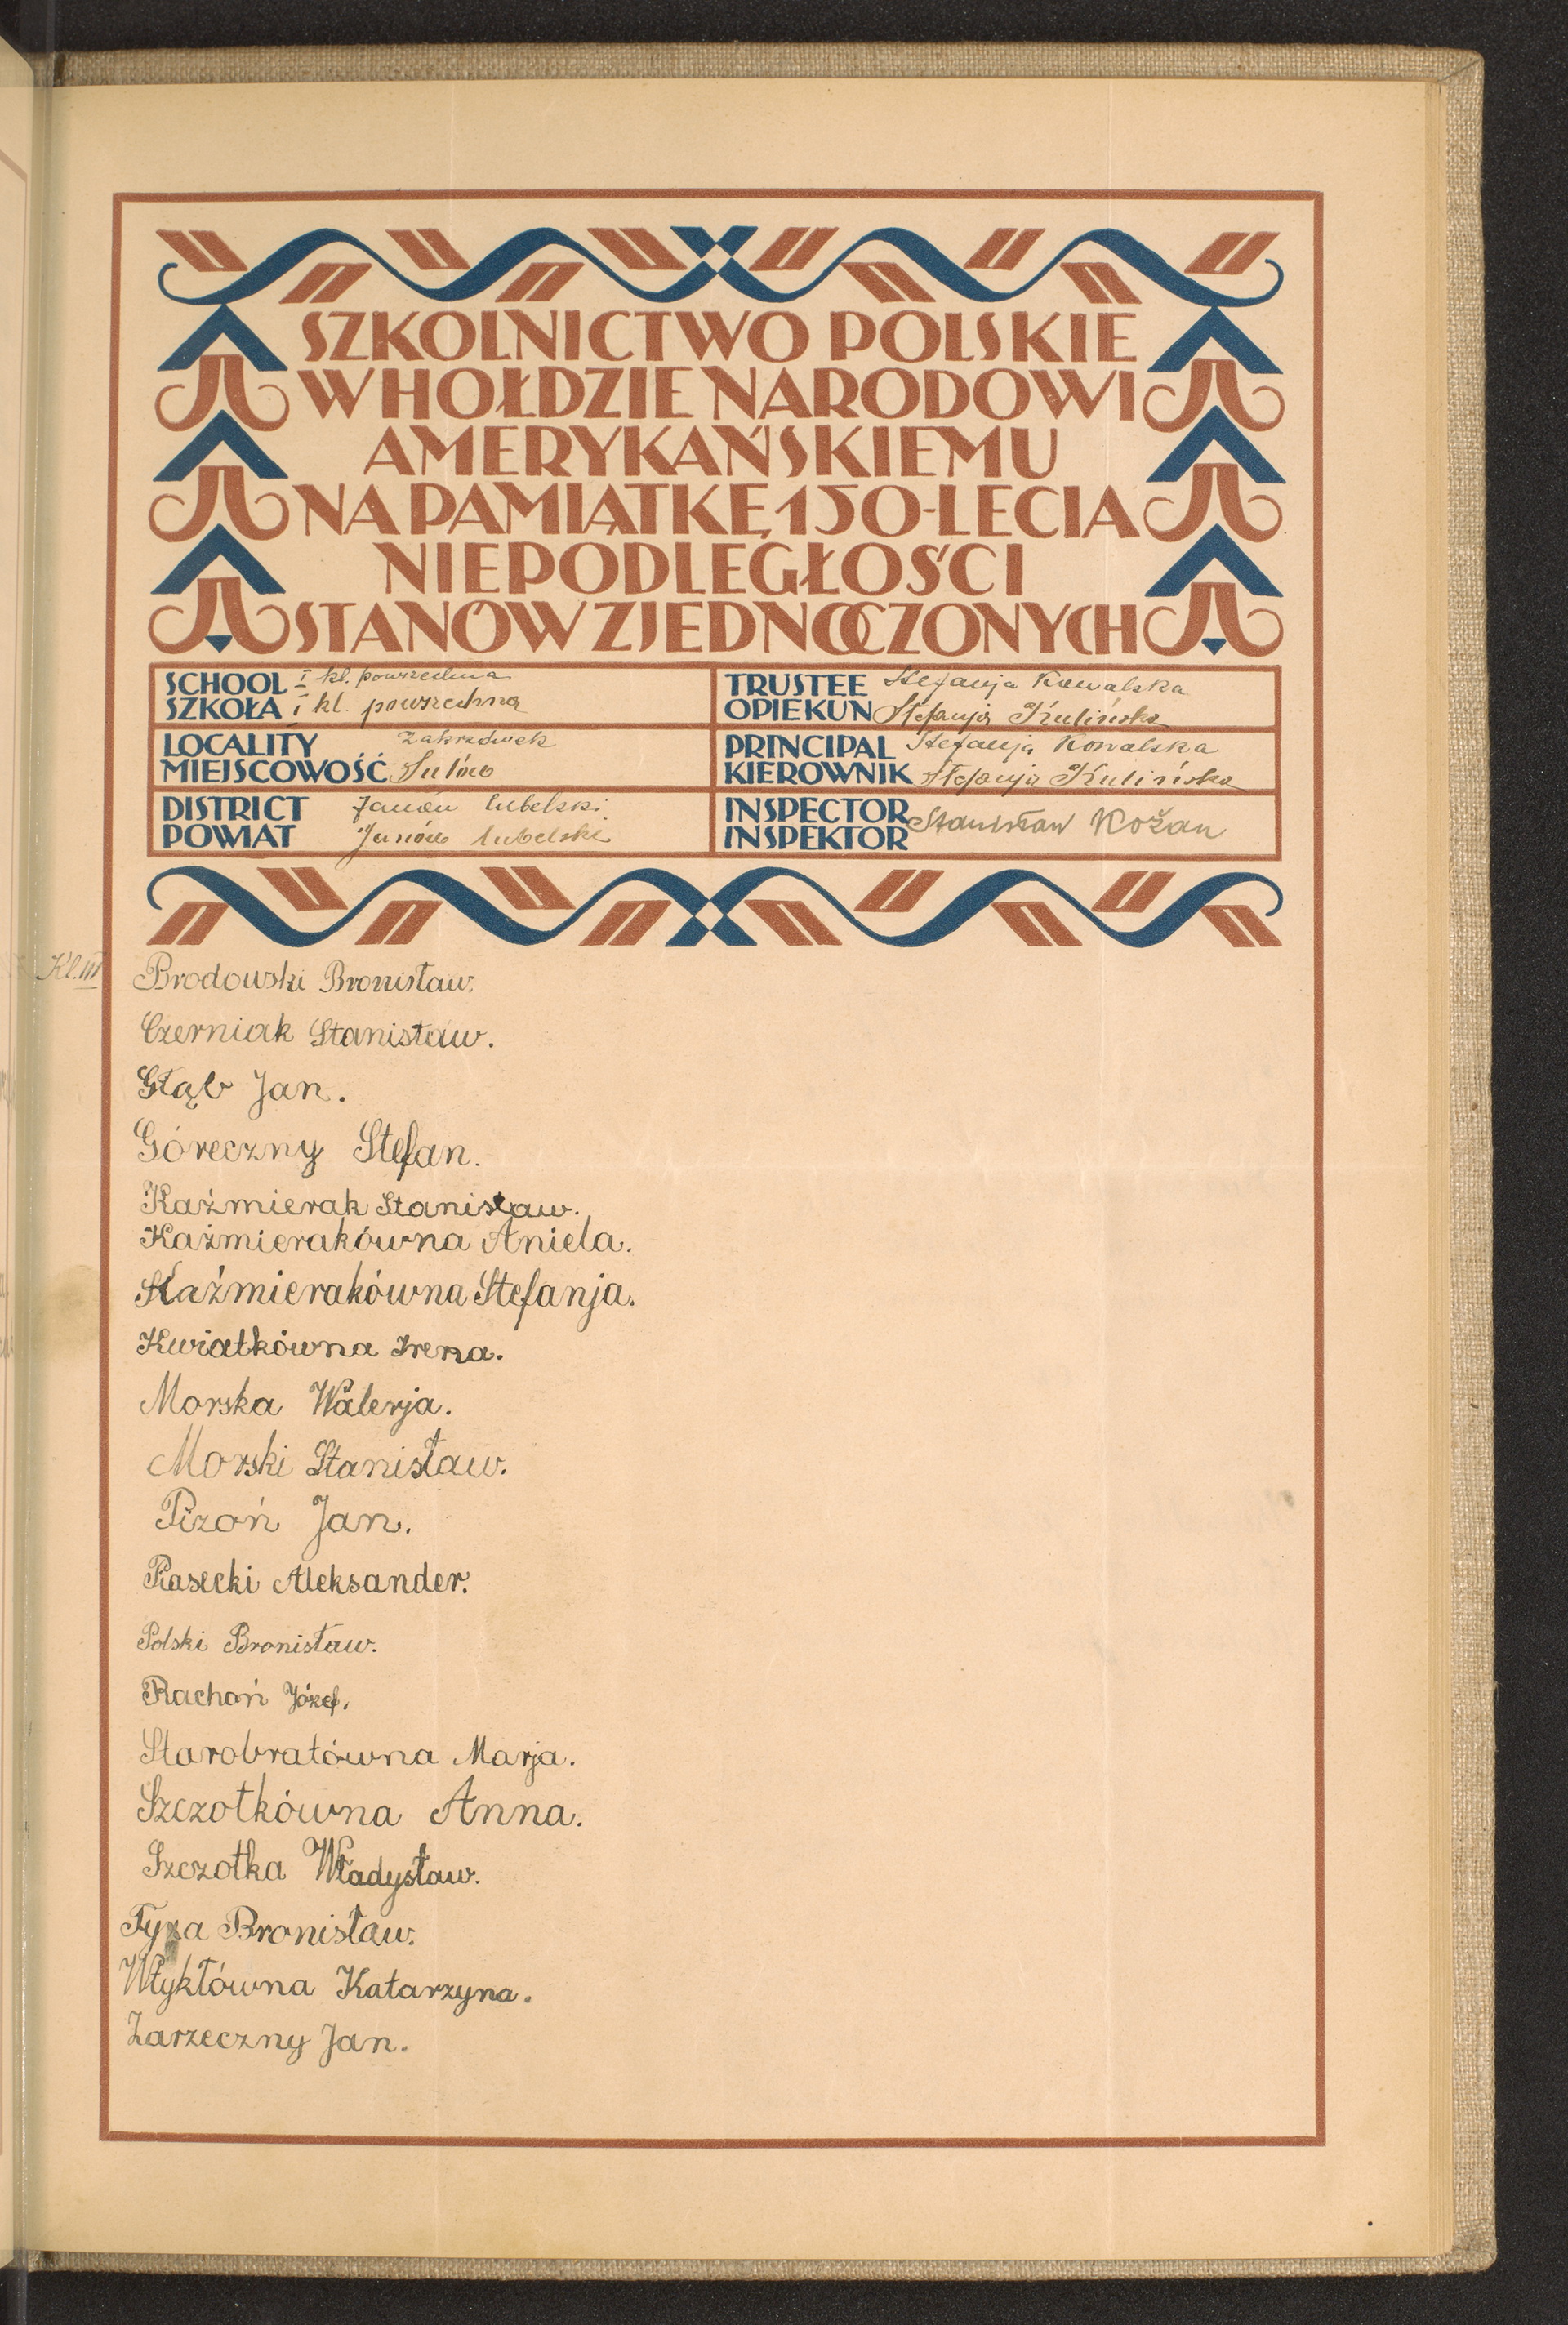 SZKOLNICTWO POLSKIE
W HOŁDZIE NARODOWI
AMERYKAŃSKIEMU
NA PAMIĄTKĘ 150-LECIA
NIEPODLEGŁOŚCI
STANÓW ZJEDNOCZONYCH
SCHOOL I kl. powszechna
SZKOŁA I kl. powszechna
TRUSTEE Stefanja Kowalska
OPIEKUN Stefanja Kulińska
LOCALITY Zakrzówek
MIEJSCOWOŚĆ Sulów
PRINCIPAL Stefanja Kowalska
KIEROWNIK Stefanja Kulińska
DISTRICT Janów lubelski
POWIAT Janów lubelski
INSPECTOR
INSPEKTOR Stanisław Kožan
Kl. III
Brodowski Bronisław.
Czerniak Stanisław.
Głąb Jan.
Góreczny Stefan.
Kaźmierak Stanisław.
Kaźmierakówna Aniela.
Kaźmierakówna Stefanja.
Kwiatkówna Irena.
Morska Walerja.
Morski Stanisław.
Pizoń Jan.
Piasecki Aleksander.
Polski Bronisław.
Rachoń Józef.
Starobratówna Marja.
Szczotkówna Anna.
Szczotka Władysław.
Tyra Bronisław.
Wtykłówna Katarzyna.
Zarzeczny Jan.